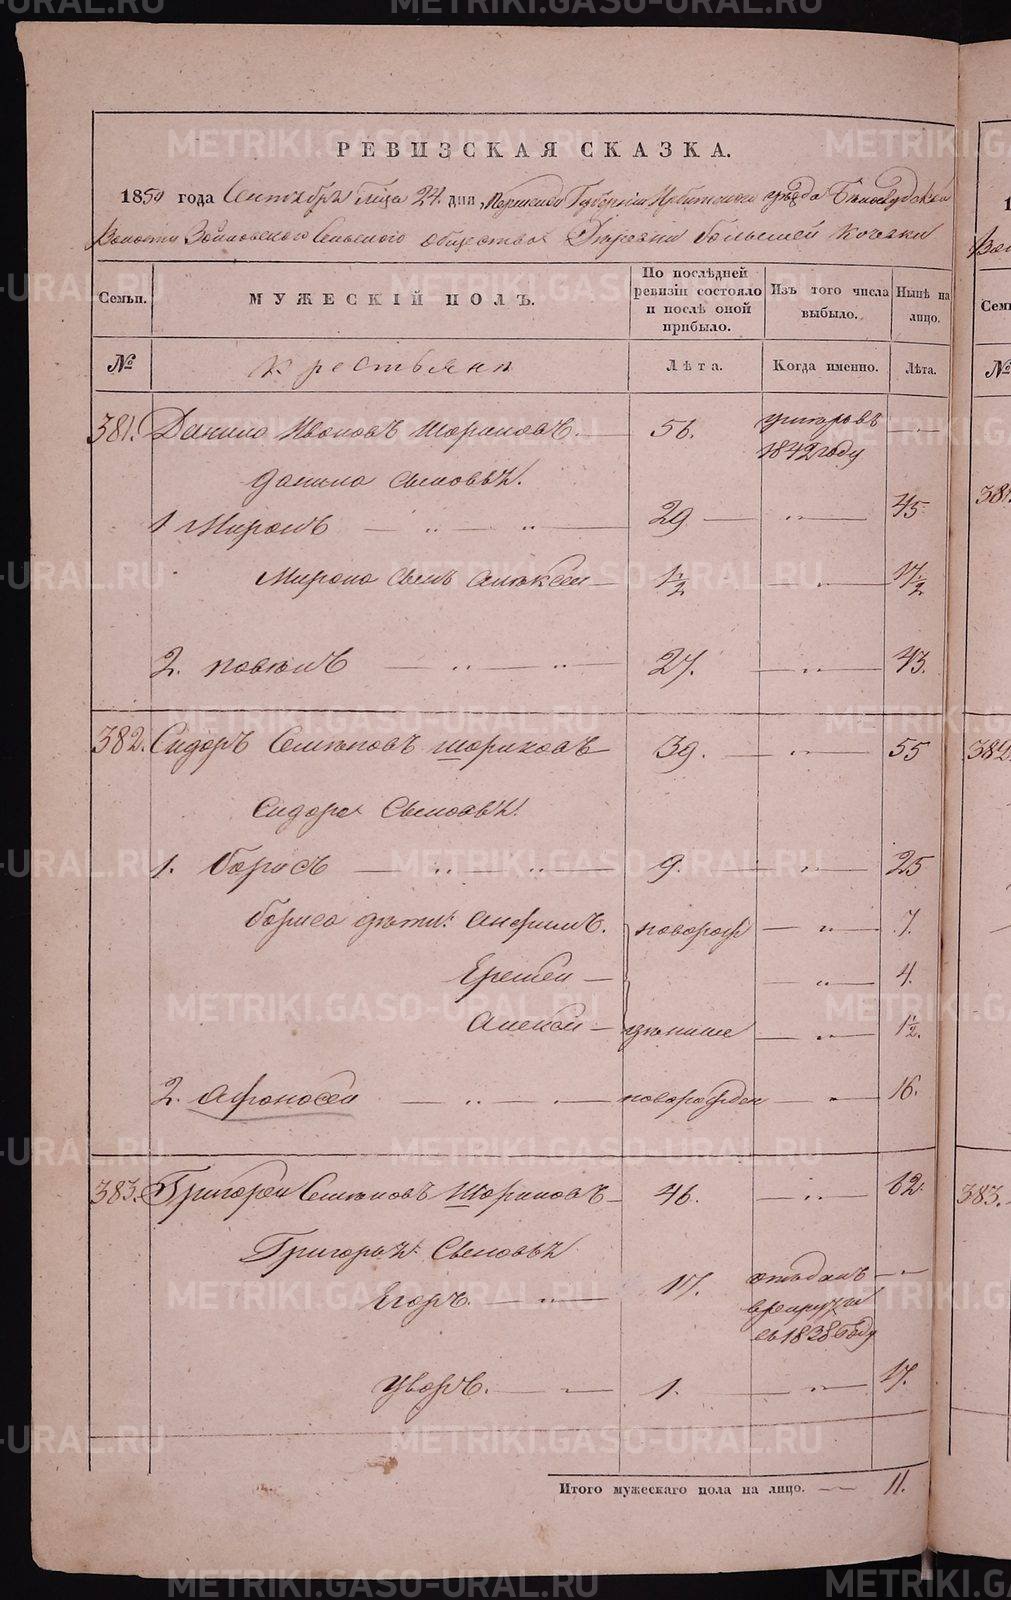 РЕВИЗСКАЯ СКАЗКА.
1850 года Сентября м-ца 24 дня, Пермской Губернiи Ирбитскаго уѣзда
Волости Зайковскаго Сельскаго общества Деревни большей Кочевки
Семьи.
МУЖЕСКIЙ ПОЛЪ.
По послѣдней ревизiи состояло и послѣ оной прибыло.
Изъ того числа выбыло.
Нынѣ на лицо.
№
крестьяне
Лѣта.
Когда именно.
Лѣта.
381. Данило Ивановъ Шориковъ. — 56. умеръ въ 1842 году —
Данила сыновья.
1 Миронъ — „ — „ — 29 — „ — 45
Мирона сынъ Алексей — 1½ — „ — 17½
2. Павелъ — „ — „ — 27. — „ — 43.
382. Сидоръ Семеновъ Шориковъ — 39. — „ — 55
Сидора Сыновья.
1. борисъ — „ — „ — 9. — „ — 25
бориса дѣти: Анфимъ. новорож — „ — 7.
Еремей — — „ — 4.
Алексей — денные — „ — 1½.
2. Афонасей — „ — „ — новорожден — „ — 16.
383. Григорей Семеновъ Шориковъ — 46. — „ — 62.
Григорья Сыновья
Егоръ. — „ — 17. отданъ в рекруты въ 1838 Году —
Уваръ. — „ — 1. — „ — 17.
Итого мужескаго пола на лицо. — 11.
384
382
383.
METRIKI.GASO-URAL.RU